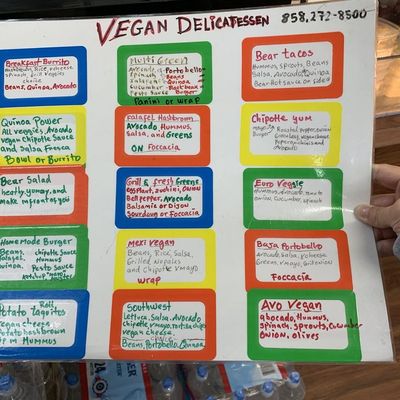 VEGAN DELICATESSEN
858,272-8500
Breakfast Burrito
Mushrooms, Rice, vcheese
spinach, Grill veggies
choice
Beans, Quinoa, Avocado
Multi Green
Avocado, Portobello
spinach, Beans
Salsa, Quinoa
Cucumber, Black bean
Pesto sauce Burger
Panini or wrap
Bear tacos
Hummus, sprouts, Beans
Salsa, Avocado, Quinoa
Bear Hot sauce on side
Quinoa Power
All veggies, Avocado
vegan Chipotle Sauce
and Salsa Fresca
Bowl or Burrito
Falafel Hashbrown
Avocado Hummus,
Salsa, and Greens
ON Foccacia
Chipotle yum
Roasted Pepper, onion
Green leaf, vegan cheese
Bear Salad
heatly, yumay, and
make mfornt of you
Grill & fresh Greens
eggPlant, zuchini, Onion
Bell pepper, Avocado
Balsamic or Dijon
Sourdough or Foccacia
Euro Veggie
Hummus, Avocado,
onion, Cucumber, spinach
Home Made Burger
Beans, chipotle sauce
falafel, Hummus
Quinoa, Pesto Sauce
Ketchup
Mexi Vegan
Beans, Rice, Salsa,
Grilled Nopales
and Chipotle vmayo
wrap
Baja Portobello
Avocado, Salsa, vcheese
Greens, vmayo, Grill onion
Foccacia
Roll
Potato Taquitos
vegan cheese
Potato hashbrown
Hummus
Southwest
Lettuce, Salsa, Avocado
chipotle vmayo, tortilla chips
vegan cheese
choice
Beans, Portobello, Quinoa
Avo Vegan
abocado, Hummus,
spinach, sprouts, Cucumber
Onion, olives